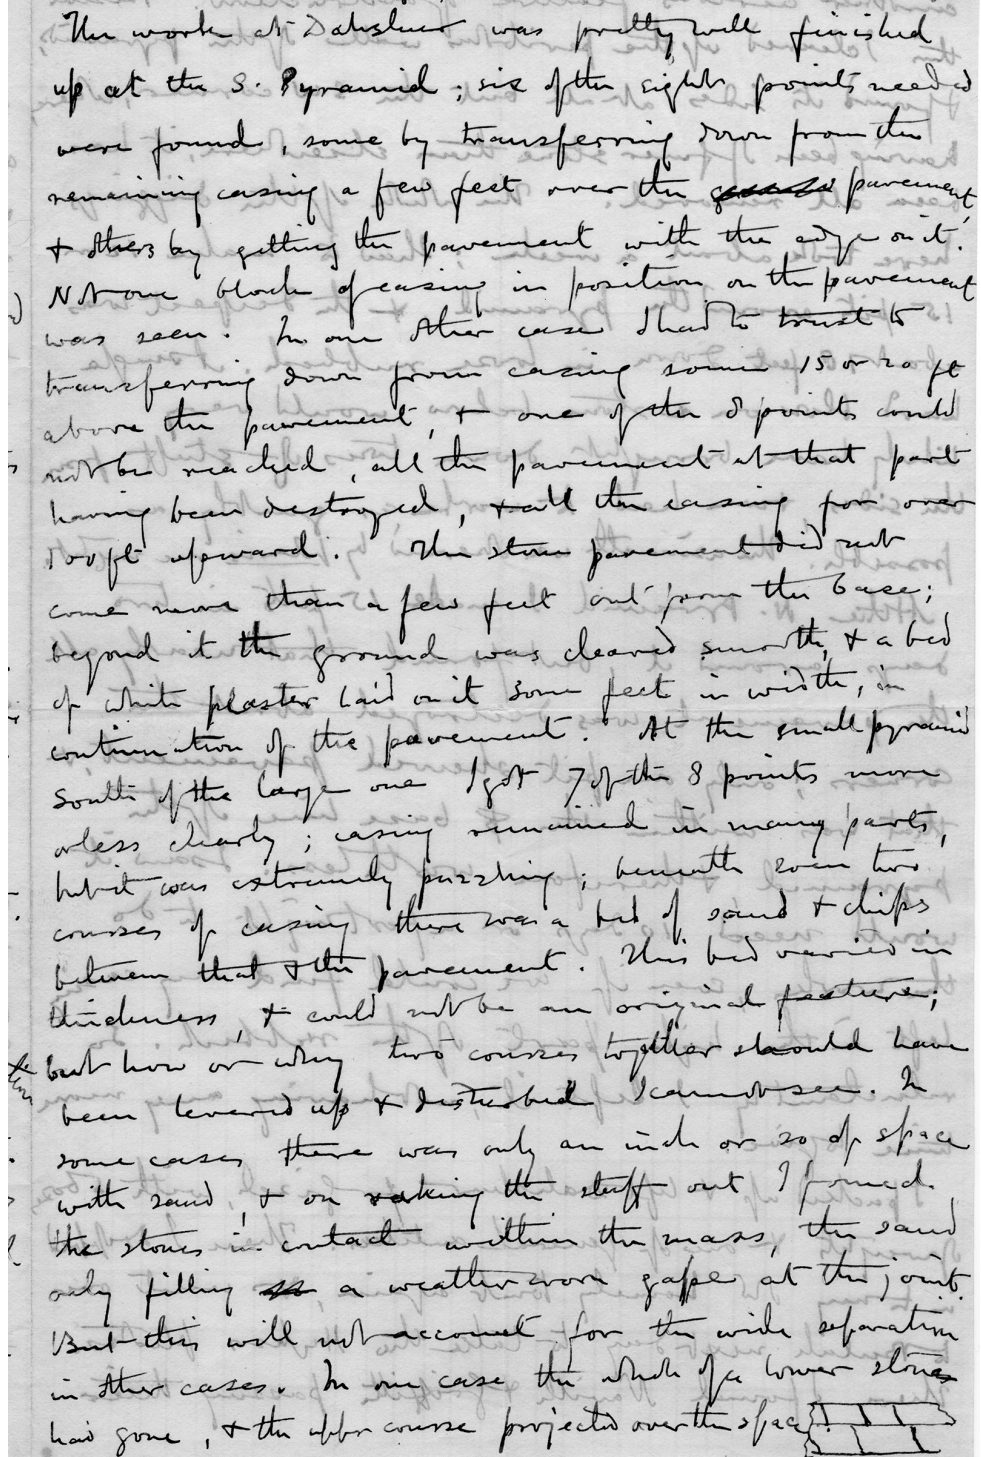 The work at Dahshur was pretty well finished
up at the S. Pyramid; six of the eight points needed
were found, some by transferring down from the
remaining casing a few feet over the pavement,
& others by getting the pavement with the edge on it.
Not one block of casing in position on the pavement
was seen. In one other case I had to trust to
transferring down from casing some 15 or 20 ft
above the pavement, & one of the 8 points could
not be reached, all the pavement at that part
having been destroyed, & all the casing for over
100 ft upward. The stone pavement did not
come more than a few feet out from the base;
beyond it the ground was cleared smooth, & a bed
of white plaster laid on it some feet in width, in
continuation of the pavement. At the small pyramid
South of the large one I got 7 of the 8 points more
or less clearly; casing remained in many parts,
but it was extremely puzzling; beneath even two
courses of casing there was a bed of sand & chips
between that & the pavement. This bed varied in
thickness, & could not be an original feature;
but how or why two courses together should have
been levered up & disturbed I cannot see. In
some cases there was only an inch or so of space
with sand, & on raking the stuff out I found
the stones in contact within the mass, the sand
only filling a weatherworn gape at the joint.
But this will not account for the wide separation
in other cases. In one case the whole of a lower stones
had gone, & the upper course projected over the space.